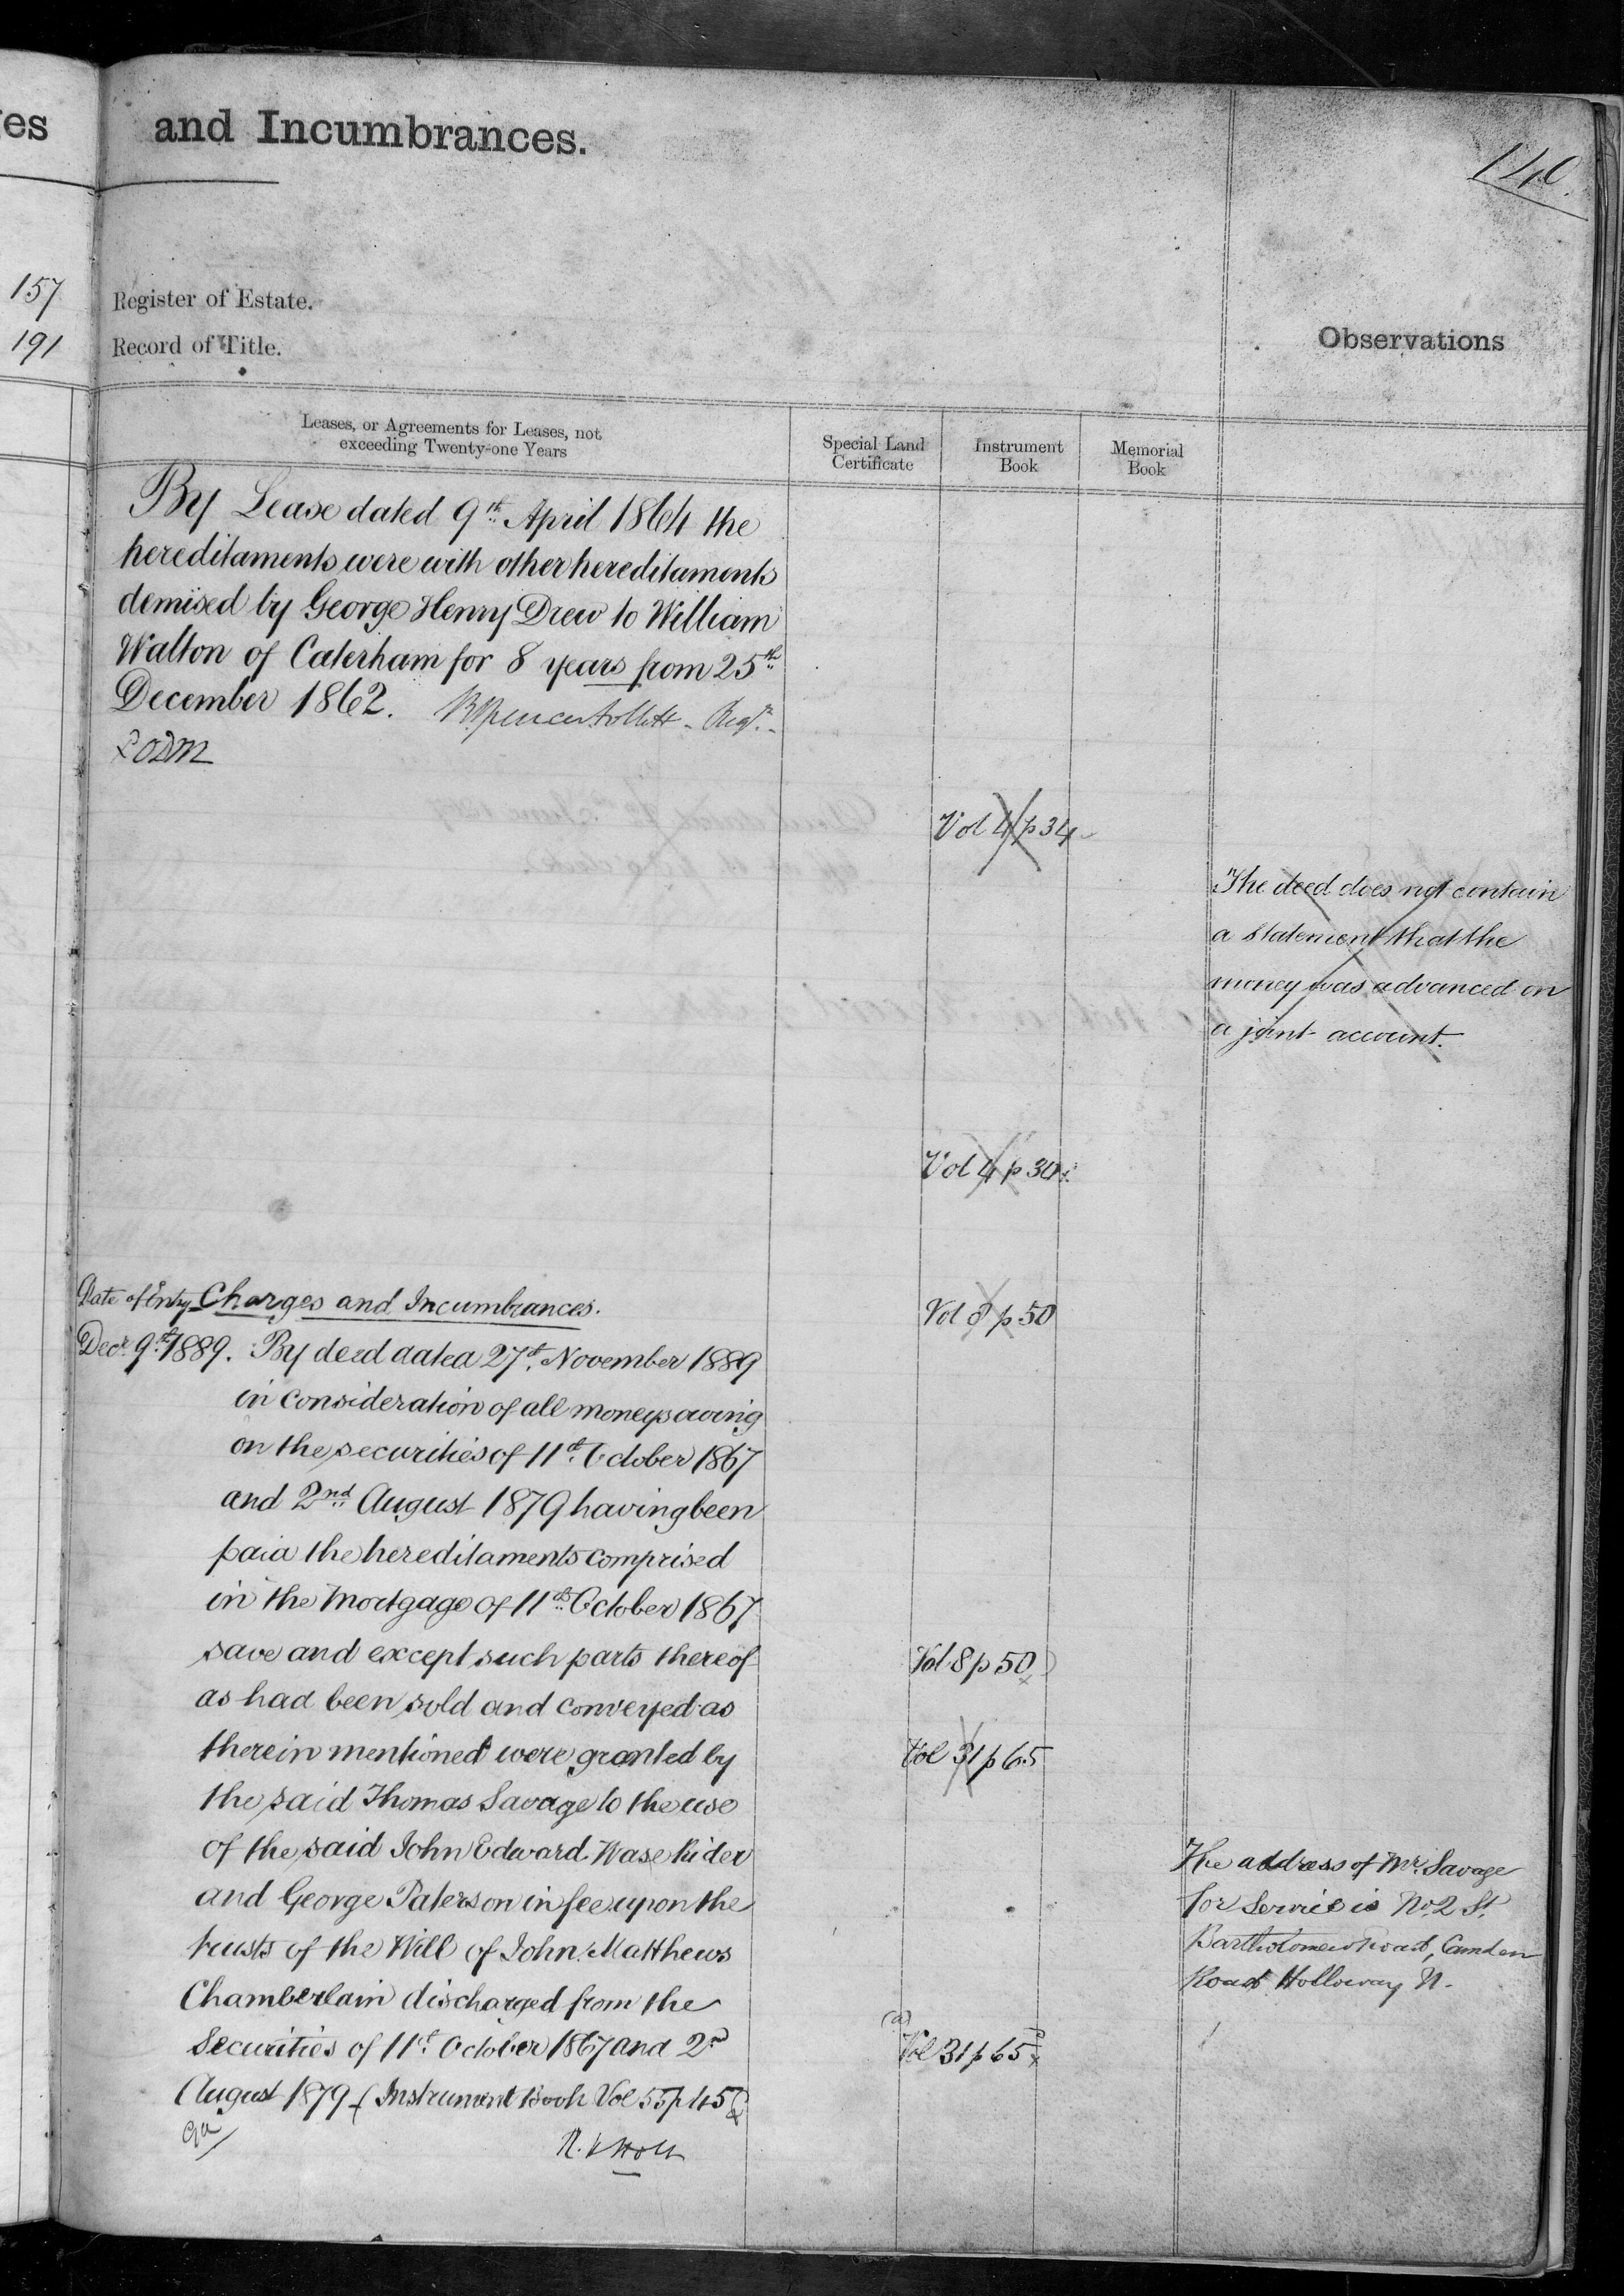 ges
and Incumbrances.
140.
157
Register of Estate.
191
Record of Title.
Observations
Leases, or Agreements for Leases, not
exceeding Twenty-one Years
Special Land
Certificate
Instrument
Book
Memorial
Book
By Lease dated 9th April 1864 the
hereditaments were with other hereditaments
demised by George Henry Drew to William
Walton of Caterham for 8 years from 25th
December 1862. Regr.
Vol 4 p 34
The deed does not contain
a statement that the
money was advanced on
a joint account.
Vol 4 p 34
Date of Entry Charges and Incumbrances.
Vol 8 p 50
Decr. 9th 1889. By deed dated 27th November 1889
in consideration of all moneys owing
on the securities of 11th October 1867
and 2nd August 1879 having been
paid the hereditaments comprised
in the Mortgage of 11th October 1867
save and except such parts thereof
Vol 8 p 50
as had been sold and conveyed as
therein mentioned were granted by
Vol 31 p 65
the said Thomas Savage to the use
of the said John Edward Wase Rider
and George Paterson in fee upon the
trusts of the Will of John Matthews
Chamberlain discharged from the
Securities of 11th October 1867 and 2nd
August 1879 (Instrument Book Vol 55 p 45)
The address of Mr. Savage
for Service is No. 2 St.
Bartholomew Road, Camden
Road Holloway N.
(a)
Vol 31 p 65